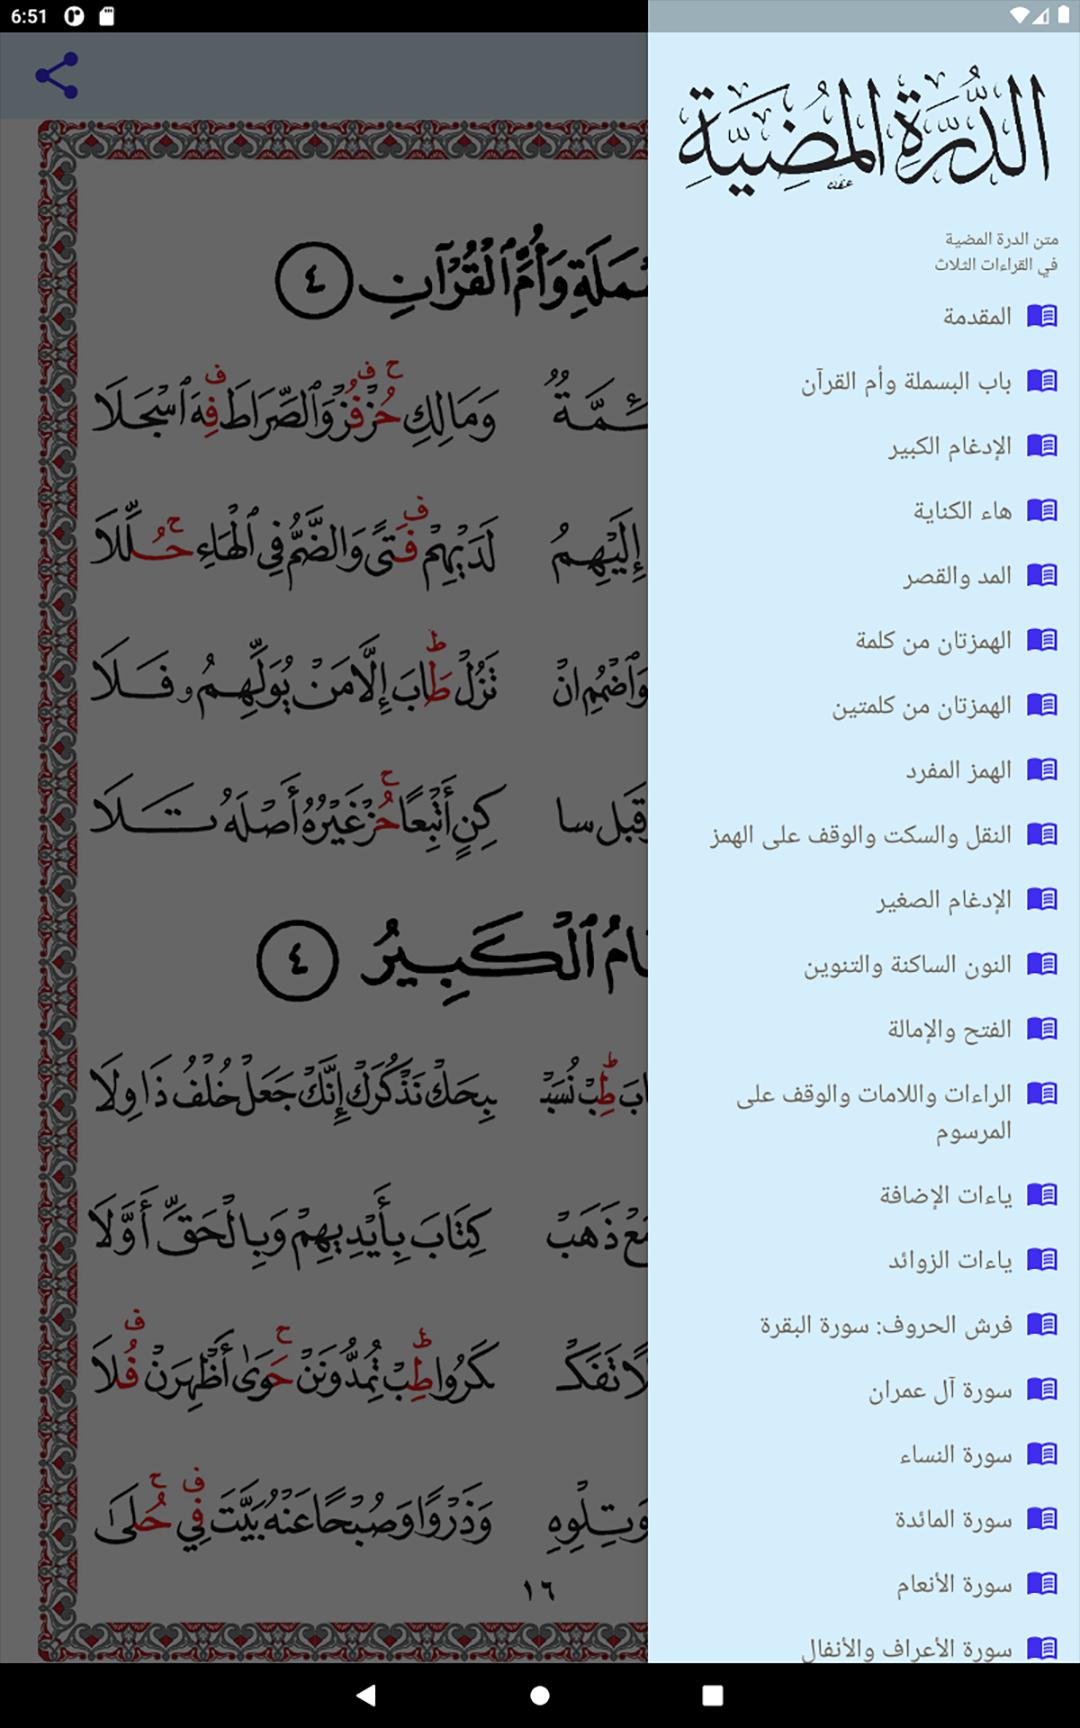 6:51
الدُّرَّةِ المُضِيَّةِ
متن الدرة المضية
في القراءات الثلاث
المقدمة
باب البسملة وأم القرآن
الإدغام الكبير
هاء الكناية
المد والقصر
الهمزتان من كلمة
الهمزتان من كلمتين
الهمز المفرد
النقل والسكت والوقف على الهمز
الإدغام الصغير
النون الساكنة والتنوين
الفتح والإمالة
الراءات واللامات والوقف على
المرسوم
ياءات الإضافة
ياءات الزوائد
فرش الحروف: سورة البقرة
سورة آل عمران
سورة النساء
سورة المائدة
سورة الأنعام
سورة الأعراف والأنفال
وَأُمِّ ٱلْقُرْآنِ ٤
وَمَالِكِ حُزْ فُزْ وَٱلصِّرَاطَ فِهَ ٱسْجَلَا
إِلَيْهِمُ لَدَيْهِمْ فَتًى وَالضَّمُّ فِي ٱلْهَاءِ حُلِّلَا
وَٱضْمُمِ انْ تَزُلْ طَابَ إِلَّا مَنْ يُوَلِّهِمُ وفَلَا
قَبْلَ سا كِنٍ أَتْبِعًا حُزْ غَيْرُهُ أَصْلَهُ تَلَا
ٱلْكَبِيرُ ٤
طِبْ نُسَبْ بِحَكْ نَذْكُرَكْ إِنَّكْ جَعَلْ خُلْفُ ذَا وِلَا
ذَهَبْ كِتَابَ بِأَيْدِيهِمْ وَبِالْحَقِّ أَوَّلَا
تَفَكْ كَرُوا طِبْ تُمِدُّونَنْ حَوَى أَظْهِرَنْ فُلَا
وَتِلْوِهِ وَذَرْوًا وَصُبْحًا عَنْهُ بَيَّتَ فِي حُلَى
١٦